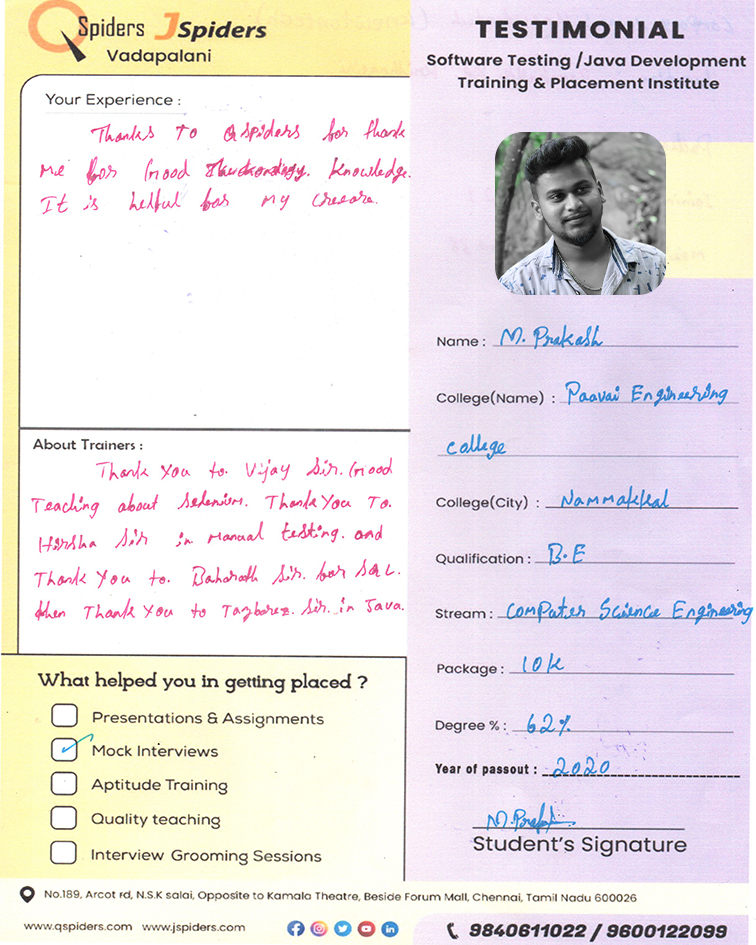 QSpiders JSpiders
Vadapalani
TESTIMONIAL
Software Testing /Java Development
Training & Placement Institute
Your Experience :
Thanks To Qspiders for thank
me for Good knowledge.
It is helful for my creeare.
Name : M. Prakash
College(Name) : Paavai Engineering
college
College(City) : Nammakkal
Qualification : B.E
Stream : Computer Science Engineering
Package : 10k
Degree % : 62%
Year of passout : 2020
M.Prakash
Student's Signature
About Trainers :
Thank You to. Vijay Sir. Good
Teaching about selenium. Thank You To.
Harsha Sir in Manual testing. and
Thank You to. Baharath Sir. for SQL.
then Thank You to Tagbarez. Sir. in Java.
What helped you in getting placed ?
Presentations & Assignments
Mock Interviews
Aptitude Training
Quality teaching
Interview Grooming Sessions
No.189, Arcot rd, N.S.K salai, Opposite to Kamala Theatre, Beside Forum Mall, Chennai, Tamil Nadu 600026
www.qspiders.com www.jspiders.com
9840611022 / 9600122099